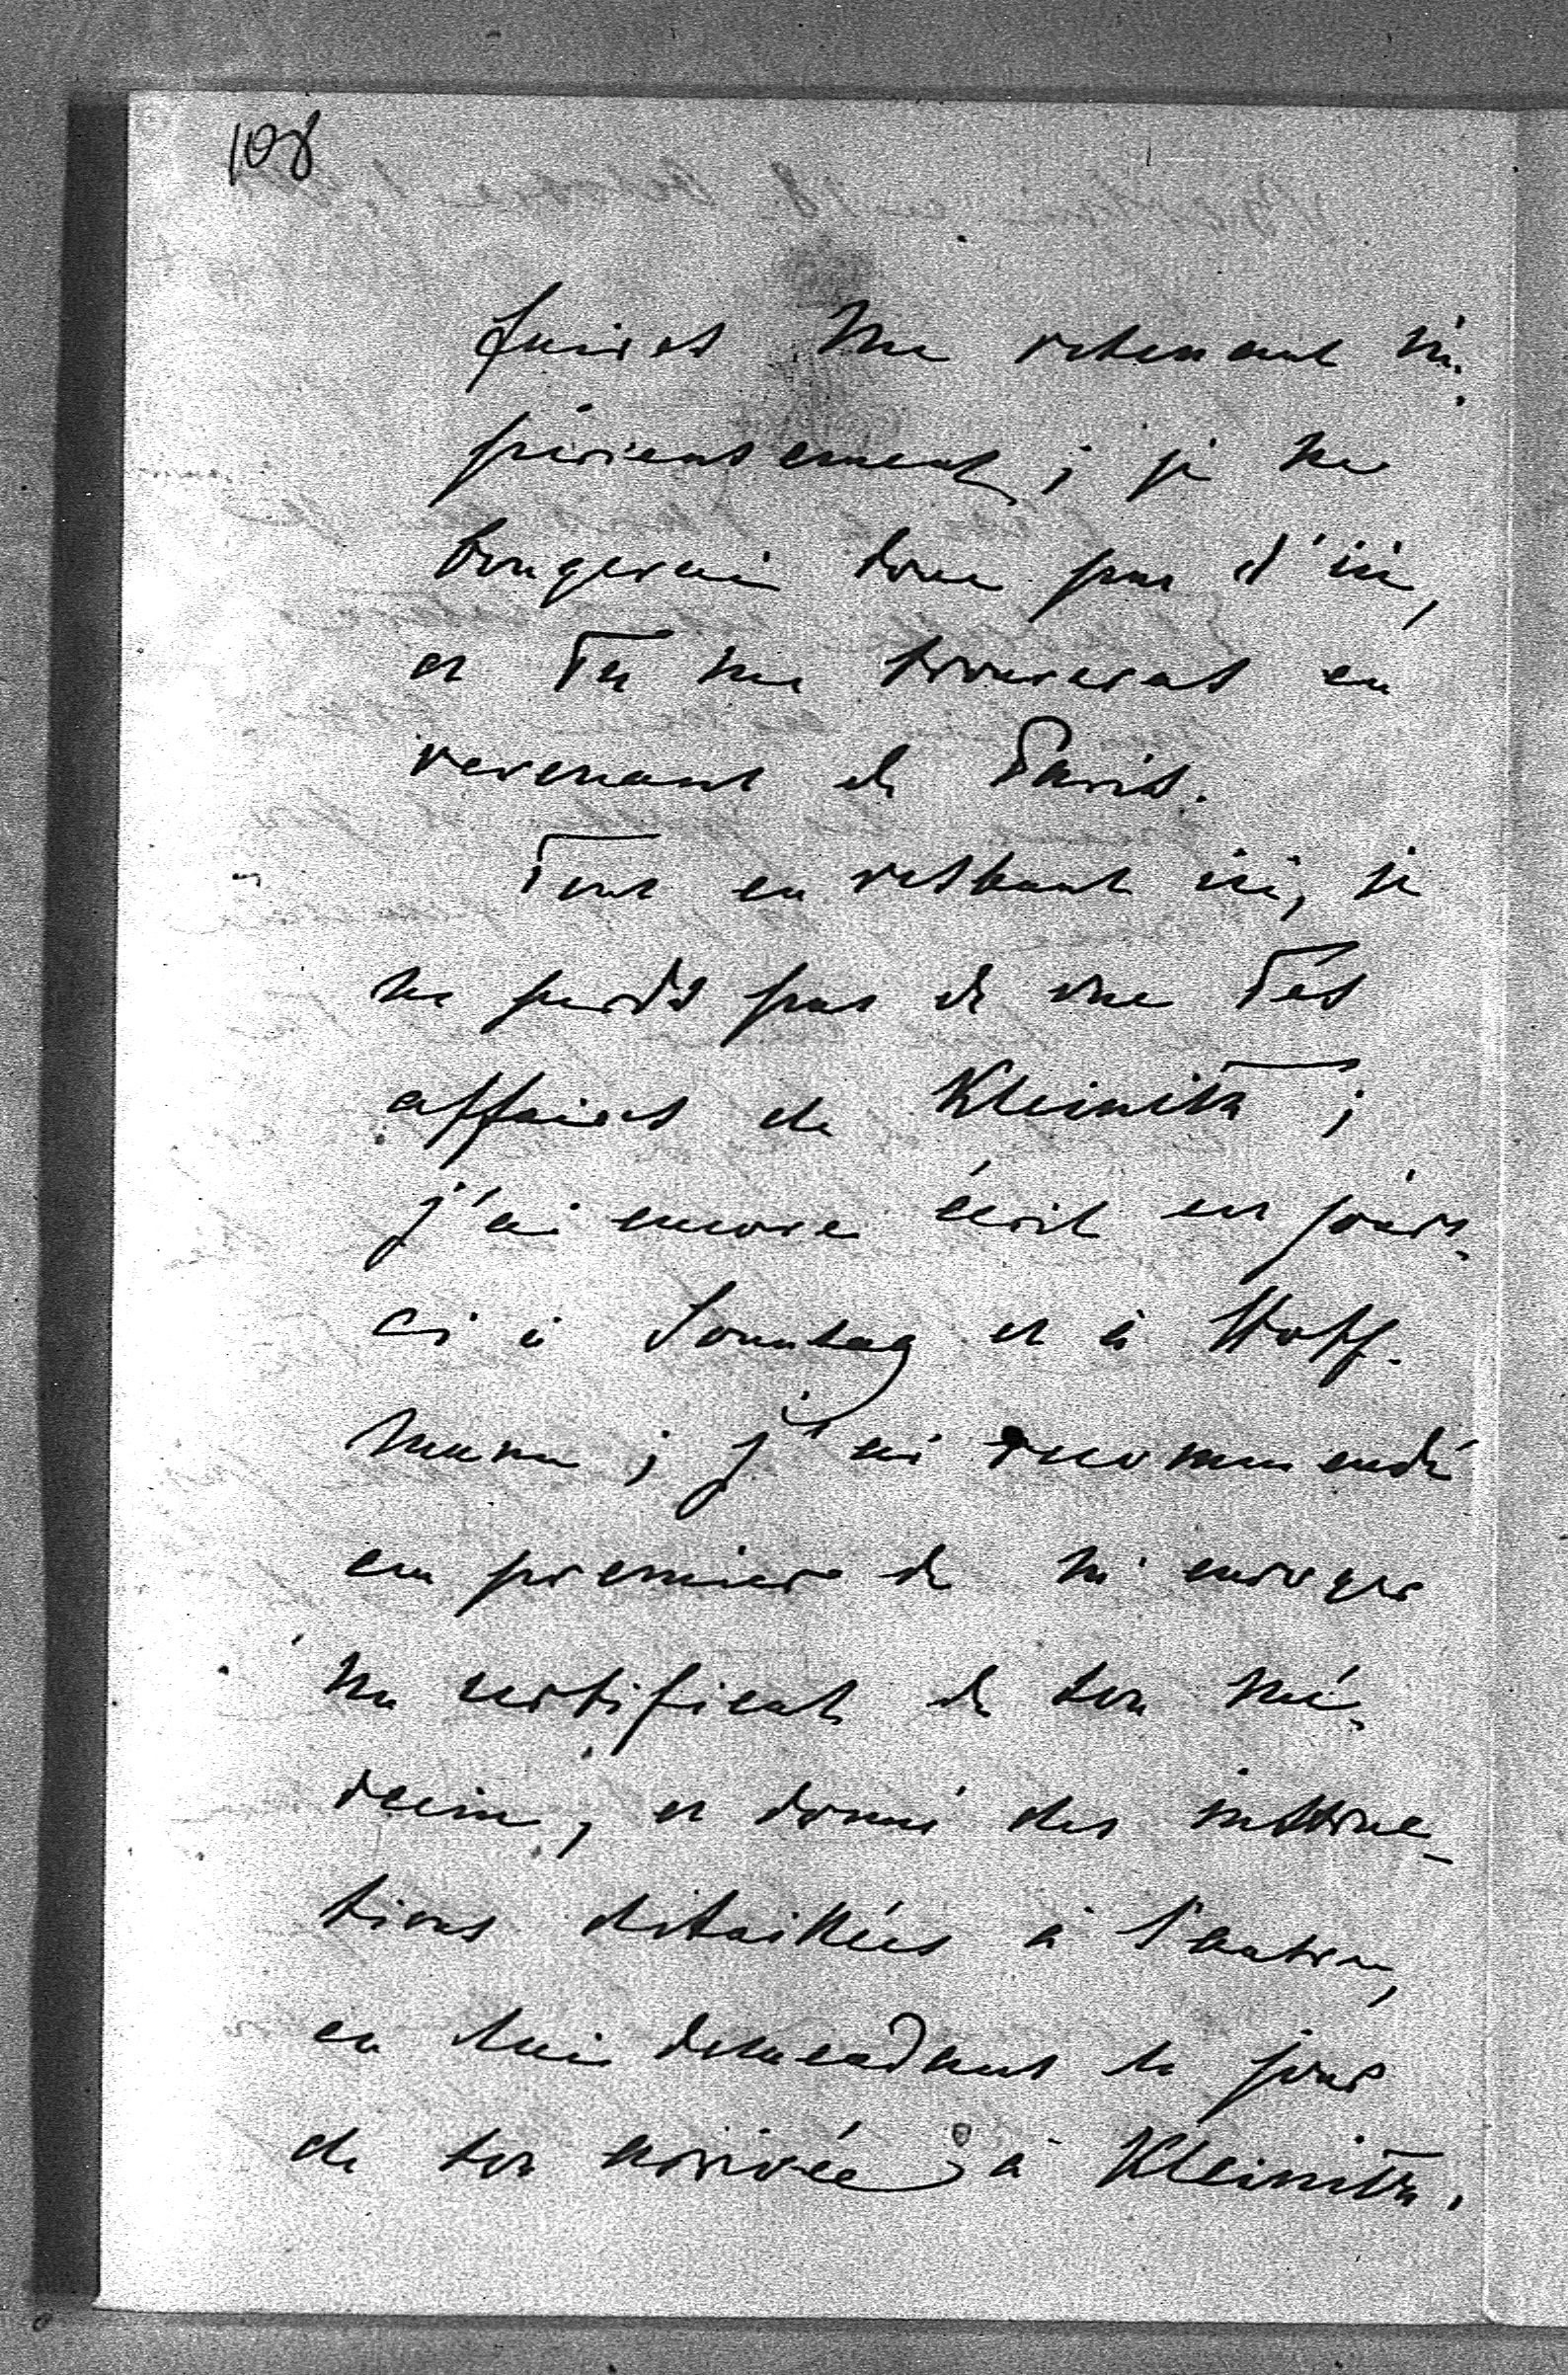 108
faires me retenant im-
périeusement ; je ne
bougerai donc pas d'ici,
et Tu me trouveras en
revenant de Paris.
Tout en restant ici, je
ne perds pas de vue Tes
affaires de Kleinitz ;
j'ai encore écrit ces jours-
ci à Sonntag et à Hoff-
mann ; j'ai recommendé
au premier de m'envoyer
un certificat de ton mé-
decin, et donné des instruc-
tions détaillées à l'autre,
en lui demandant le jour
de ton arrivée à Kleinitz.